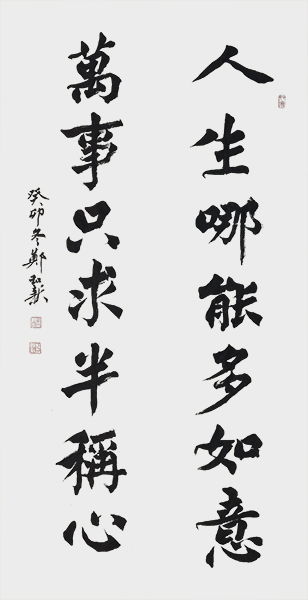 人生哪能多如意
萬事只求半稱心
癸卯冬鄭